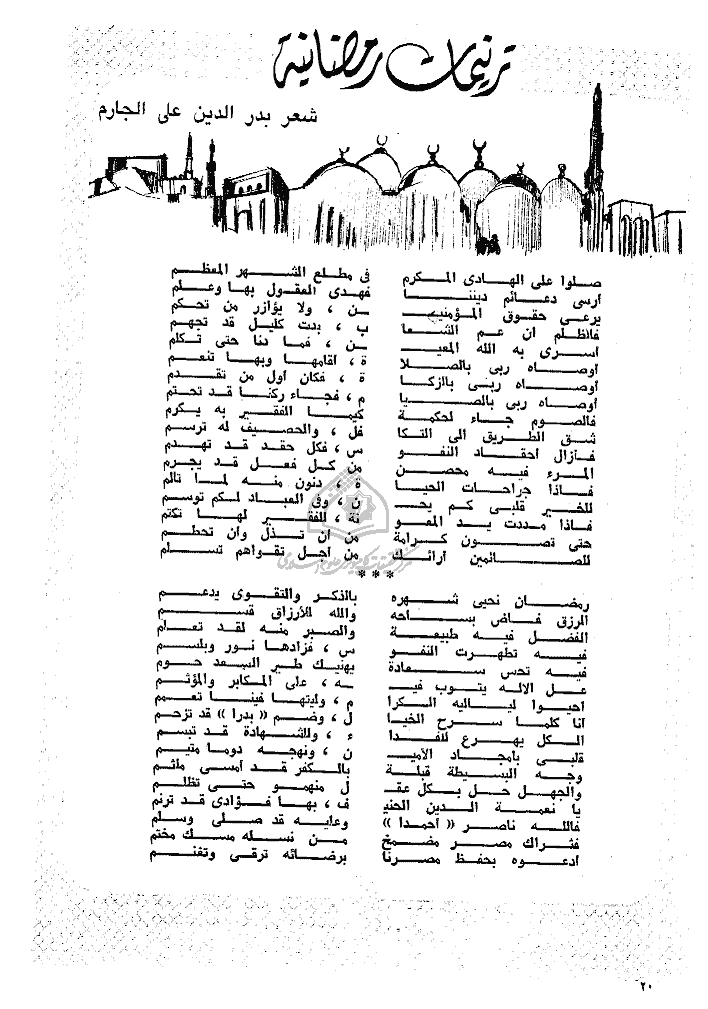 ترنيمات رمضانية
شعر بدر الدين على الجارم
صلوا على الهادى المكرم فى مطلع الشهر المعظم
أرسى دعائم ديننا فهدى العقول بها وعلم
يرعى حقوق المؤمنيـ ـن ، ولا يؤازر من تحكم
فالظلم ان عم الشعا ب ، بدت كليل قد تجهم
اسرى به الله المعيـ ـن ، فما دنا حتى تكلم
أوصاه ربى بالصلا ة ، أقامها وبها تنعم
أوصاه ربى بالزكا ة ، فكان أول من تقدم
أوصاه ربى بالصيا م ، فجاء ركنا قد تحتم
فالصوم جاء لحكمة كيما الفقير به يكرم
شق الطريق الى التكا فل ، والحصيف له ترسم
فأزال أحقاد النفو س ، فكل حقد قد تهدم
المرء فيه محصن من كل فعل قد يجرم
فاذا جراحات الحيا ة ، دنون منه لما تألم
للخير قلبى كم يحـ ـن ، وفى العباد لكم توسم
فاذا مددت يد المعو نة ، للفقير لها تكتم
حتى تصون كرامة من أن تذل وأن تحطم
للصائمين أرائك من أجل تقواهم تسام
***
رمضان نحيى شهره بالذكر والتقوى يدعم
الرزق فاض بساحه والله للأرزاق قسم
الفضل فيه طبيعة والصبر منه لقد تعلم
فيه تطهرت النفو س ، فزادها نور وبلسم
فيه تحس سعادة يهنيك طير السعد حوم
عل الاله يتوب فيـ ـه ، على المكابر والمؤثم
أحيوا لياليه الكرا م ، وليتها فينا تعمم
أنا كلما سرح الخيا ل ، وضم « بدرا » قد تزحم
الكل يهرع للفدا ء ، وللشهادة قد تبسم
قلبى بأمجاد الأميـ ـن ، ونهجه دوما متيم
وجه البسيطة قبلة بالكفر قد أمسى ملثم
والجهل حل بكل عقـ ـل منهمو حتى تظلم
يا نعمة الدين الحنيـ ـف ، بها فؤادى قد ترنم
فالله ناصر « أحمدا » وعليه قد صلى وسلم
فثراك مصر مضمخ من نسله مسك مختم
أدعوه بحفظ مصرنا برضائه ترقى وتغنم
٢٠